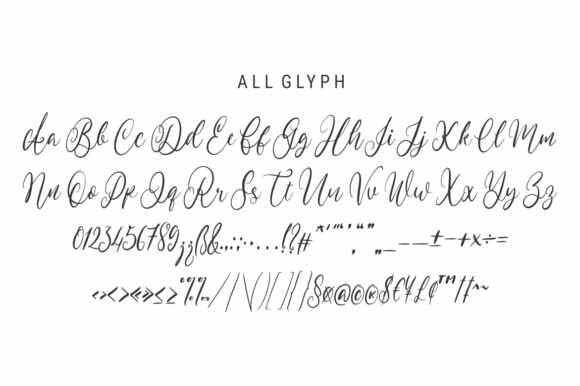 ALL GLYPH
Aa Bb Cc Dd Ee Ff Gg Hh Ii Jj Kk Ll Mm
Nn Oo Pp Qq Rr Ss Tt Uu Vv Ww Xx Yy Zz
0123456789¡¿ß&.,:;·…!?#*'"'‘’“”‚„_–—±-+×÷=
‹›<>«»≤≥%‰/|\()[]{}§®@©¤$€¥£¢™†‡~